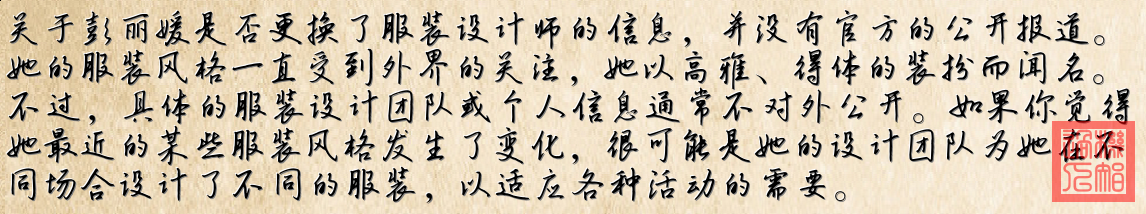 关于彭丽媛是否更换了服装设计师的信息，并没有官方的公开报道。
她的服装风格一直受到外界的关注，她以高雅、得体的装扮而闻名。
不过，具体的服装设计团队或个人信息通常不对外公开。如果你觉得
她最近的某些服装风格发生了变化，很可能是她的设计团队为她在不
同场合设计了不同的服装，以适应各种活动的需要。